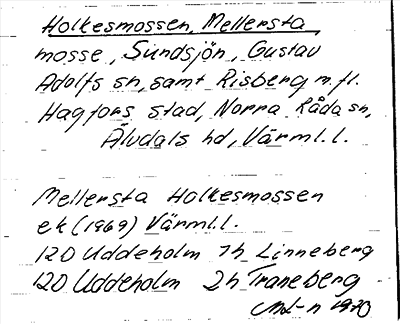 Holkesmossen, Mellersta
mosse, Sundsjön, Gustav
Adolfs sn, samt Risberg m.fl.
Hagfors stad, Norra Råda sn,
Älvdals hd, Värml. l.
Mellersta Holkesmossen
ek (1969) Värml. l.
12D Uddeholm 1h Linneberg
12D Uddeholm 2h Traneberg
1970